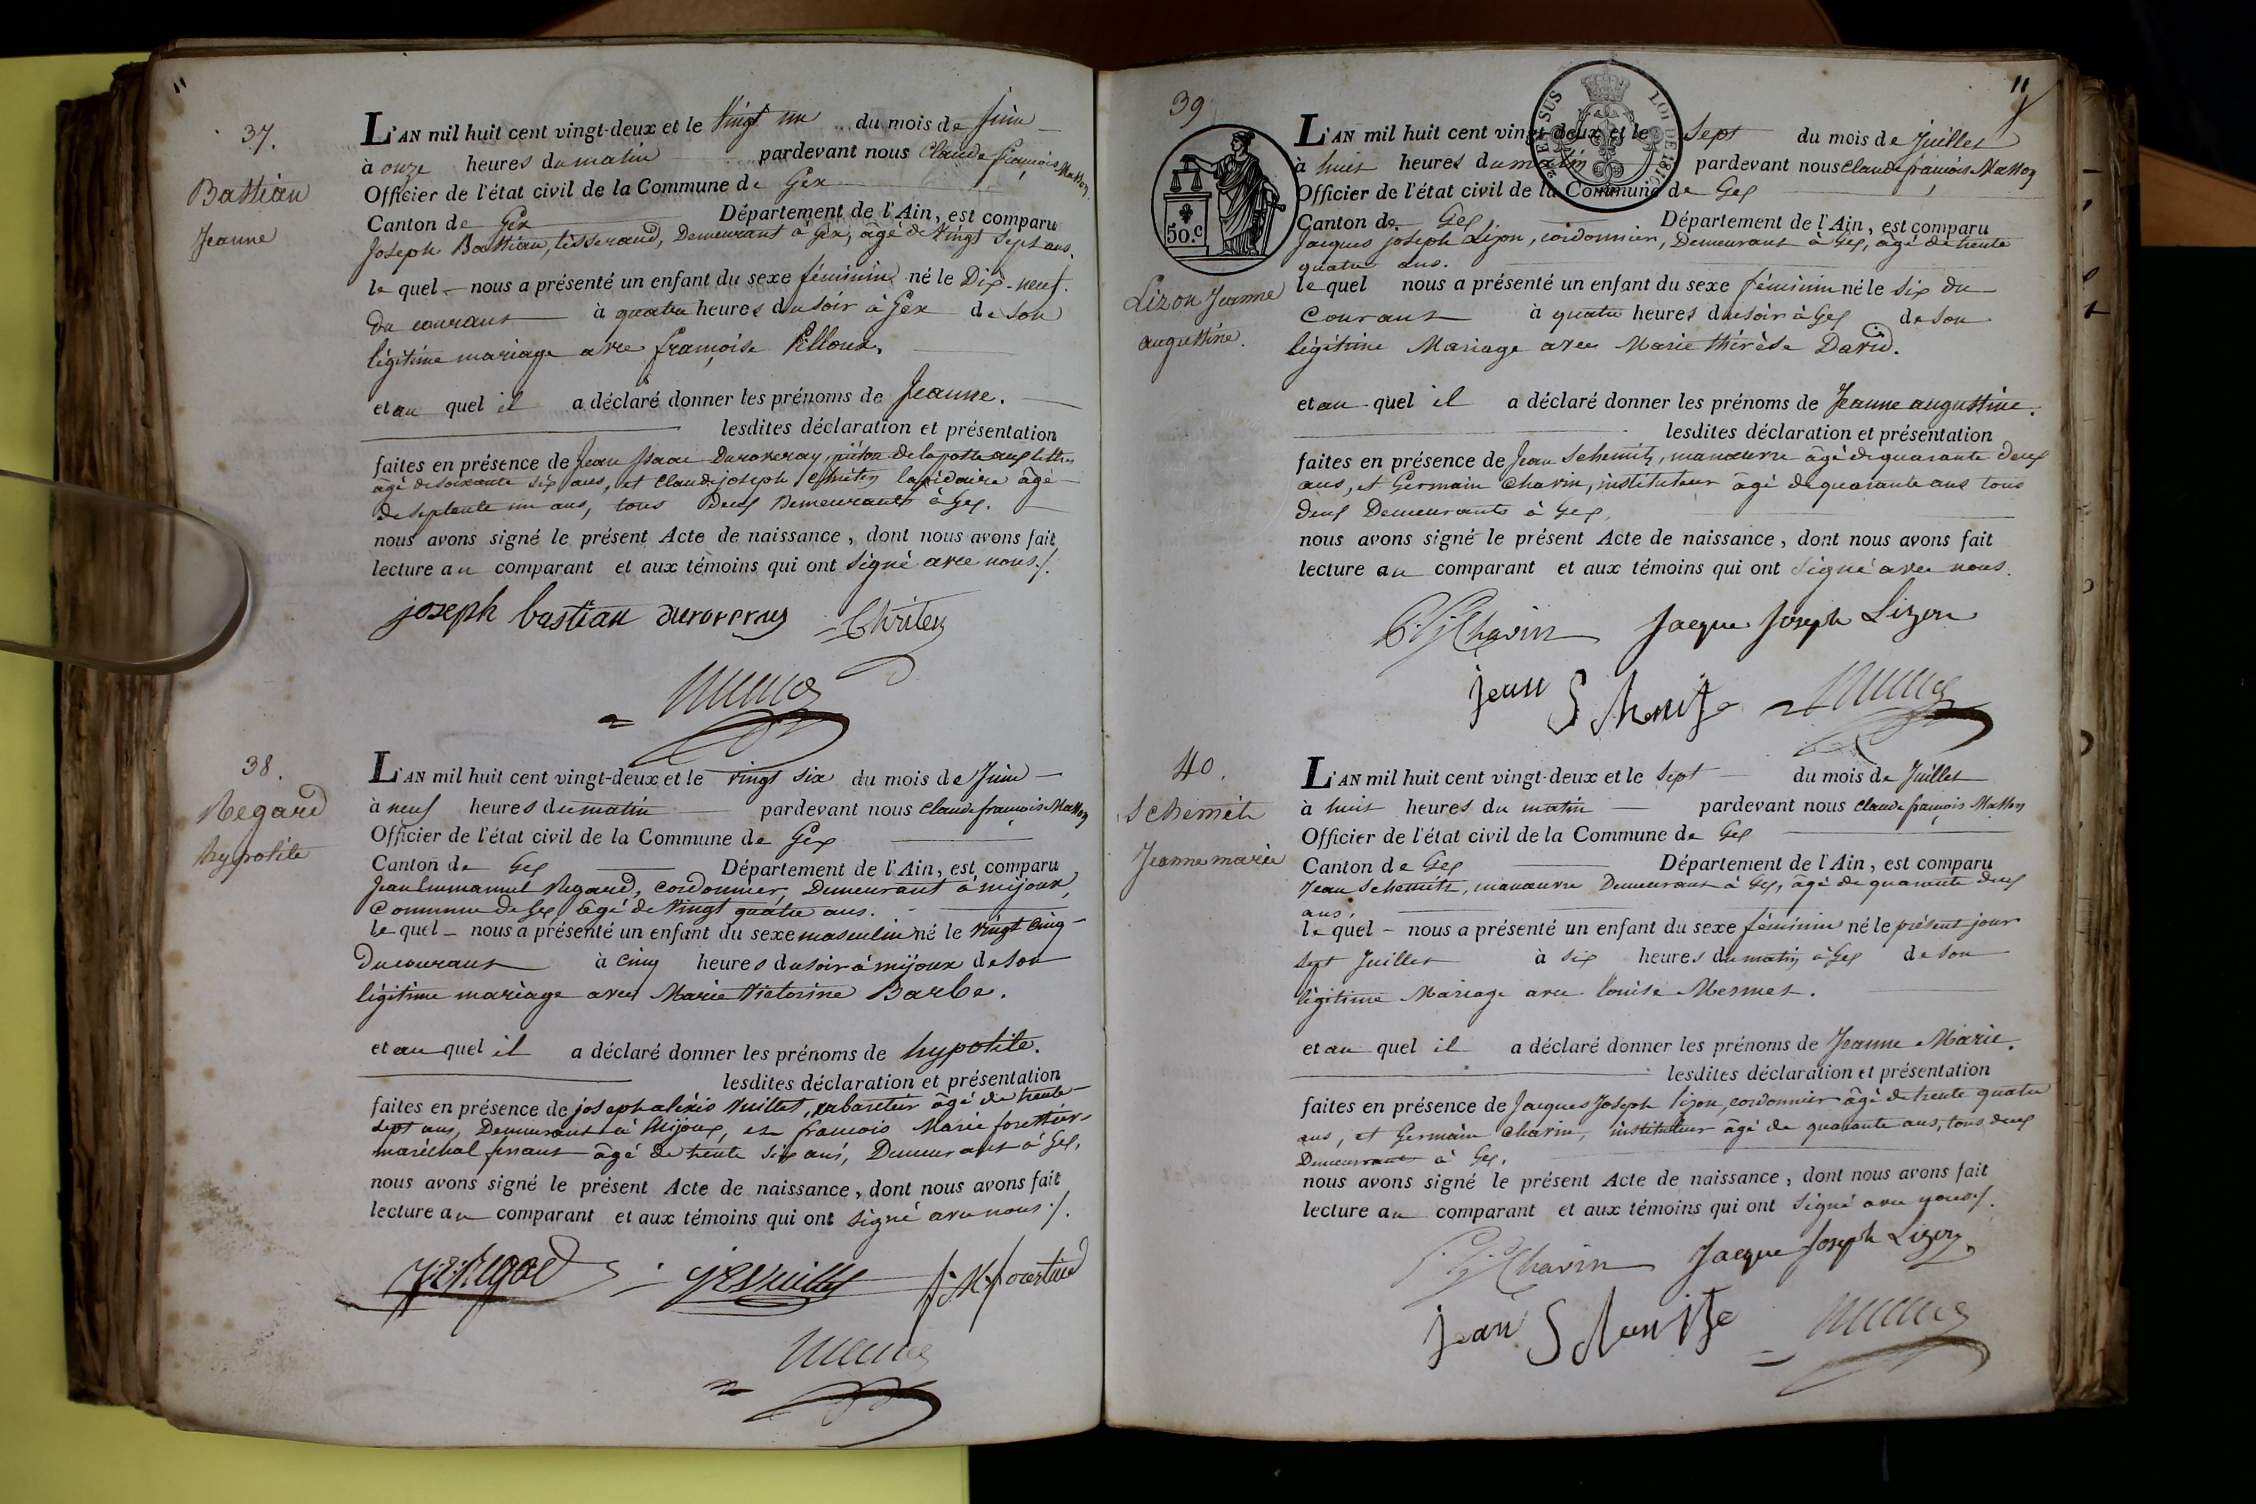 11
37.
Bastian
Jeanne
L'AN mil huit cent vingt-deux et le Vingt un du mois de Juin
à onze heures du matin pardevant nous Claude françois Masson
Officier de l'état civil de la Commune de Gex
Canton de Gex Département de l'Ain, est comparu
Joseph Bastian, tisserand, Demeurant à Gex, âgé de Vingt Sept ans.
le quel nous a présenté un enfant du sexe féminin né le Dix-neuf
Du courant à quatre heures du soir à Gex de son
légitime mariage avec françoise Pilloux.
et au quel il a déclaré donner les prénoms de Jeanne.
lesdites déclaration et présentation
faites en présence de Jean Isaac Duroveray, piéton de la poste aux lettres
âgé de soixante six ans, et Claude joseph Chriten lapidaire âgé
de septante un ans, tous Deux Demeurants à Gex.
nous avons signé le présent Acte de naissance, dont nous avons fait
lecture au comparant et aux témoins qui ont Signé avec nous./.
joseph bastian duroveray Chriten
38.
Regard
hypolite
L'AN mil huit cent vingt-deux et le vingt six du mois de Juin
à neuf heures du matin pardevant nous Claude françois Masson
Officier de l'état civil de la Commune de Gex
Canton de Gex Département de l'Ain, est comparu
Jean Emmanuel Regard, cordonnier, Demeurant à mijoux,
Commune de Gex, âgé de Vingt quatre ans.
le quel nous a présenté un enfant du sexe masculin né le vingt cinq
Du courant à cinq heures du soir à mijoux de son
légitime mariage avec Marie Victorine Barbe.
et au quel il a déclaré donner les prénoms de hypolite.
lesdites déclaration et présentation
faites en présence de joseph alexis Vuillet, cabaretier âgé de trente
sept ans, Demeurant à Mijoux, et francois Marie
maréchal ferrant âgé de trente six ans, Demeurant à Gex,
nous avons signé le présent Acte de naissance, dont nous avons fait
lecture au comparant et aux témoins qui ont signé avec nous./.
11
39
TIMBRE SUS LOI DE 1816
50.c
Lizon Jeanne
augustine.
L'AN mil huit cent vingt-deux et le Sept du mois de Juillet
à huit heures du matin pardevant nous Claude françois Masson
Officier de l'état civil de la Commune de Gex
Canton de Gex Département de l'Ain, est comparu
Jacques joseph Lizon, cordonnier, Demeurant à Gex, âgé de trente
quatre ans.
le quel nous a présenté un enfant du sexe féminin né le six du
Courant à quatre heures du soir à Gex de son
légitime Mariage avec Marie thérèse David.
et au quel il a déclaré donner les prénoms de Jeanne augustine.
lesdites déclaration et présentation
faites en présence de Jean Schemitz, manœuvre âgé de quarante deux
ans, et Germain Chavin, instituteur âgé de quarante ans tous
deux Demeurants à Gex.
nous avons signé le présent Acte de naissance, dont nous avons fait
lecture au comparant et aux témoins qui ont Signé avec nous.
Chavin Jacque Joseph Lizon
jean
40.
Schemith
Jeanne marie
L'AN mil huit cent vingt-deux et le Sept du mois de Juillet
à huit heures du matin pardevant nous Claude françois Masson
Officier de l'état civil de la Commune de Gex
Canton de Gex Département de l'Ain, est comparu
Jean Schemitz, manœuvre Demeurant à Gex, âgé de quarante deux
ans.
le quel nous a présenté un enfant du sexe féminin né le présent jour
sept Juillet à six heures du matin à Gex de son
légitime Mariage avec Louise Mermet.
et au quel il a déclaré donner les prénoms de Jeanne Marie.
lesdites déclaration et présentation
faites en présence de Jacques Joseph Lizon, cordonnier âgé de trente quatre
ans, et Germain Chavin, instituteur âgé de quarante ans, tous deux
Demeurants à Gex.
nous avons signé le présent Acte de naissance, dont nous avons fait
lecture au comparant et aux témoins qui ont Signé avec nous./.
Chavin Jacque Joseph Lizon
jean